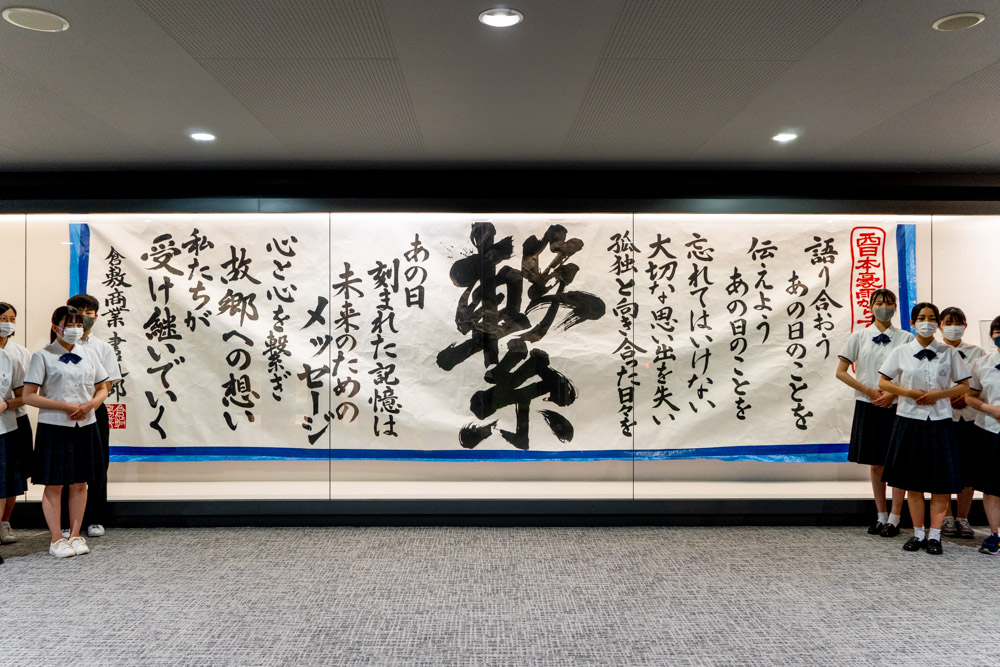 西日本豪雨から
語り合おう
あの日のことを
伝えよう
あの日のことを
忘れてはいけない
大切な思い出を失い
孤独と向き合った日々を
繋
あの日
刻まれた記憶は
未来のための
メッセージ
心と心を繋ぎ
故郷への想い
私たちが
受け継いでいく
倉敷商業 書